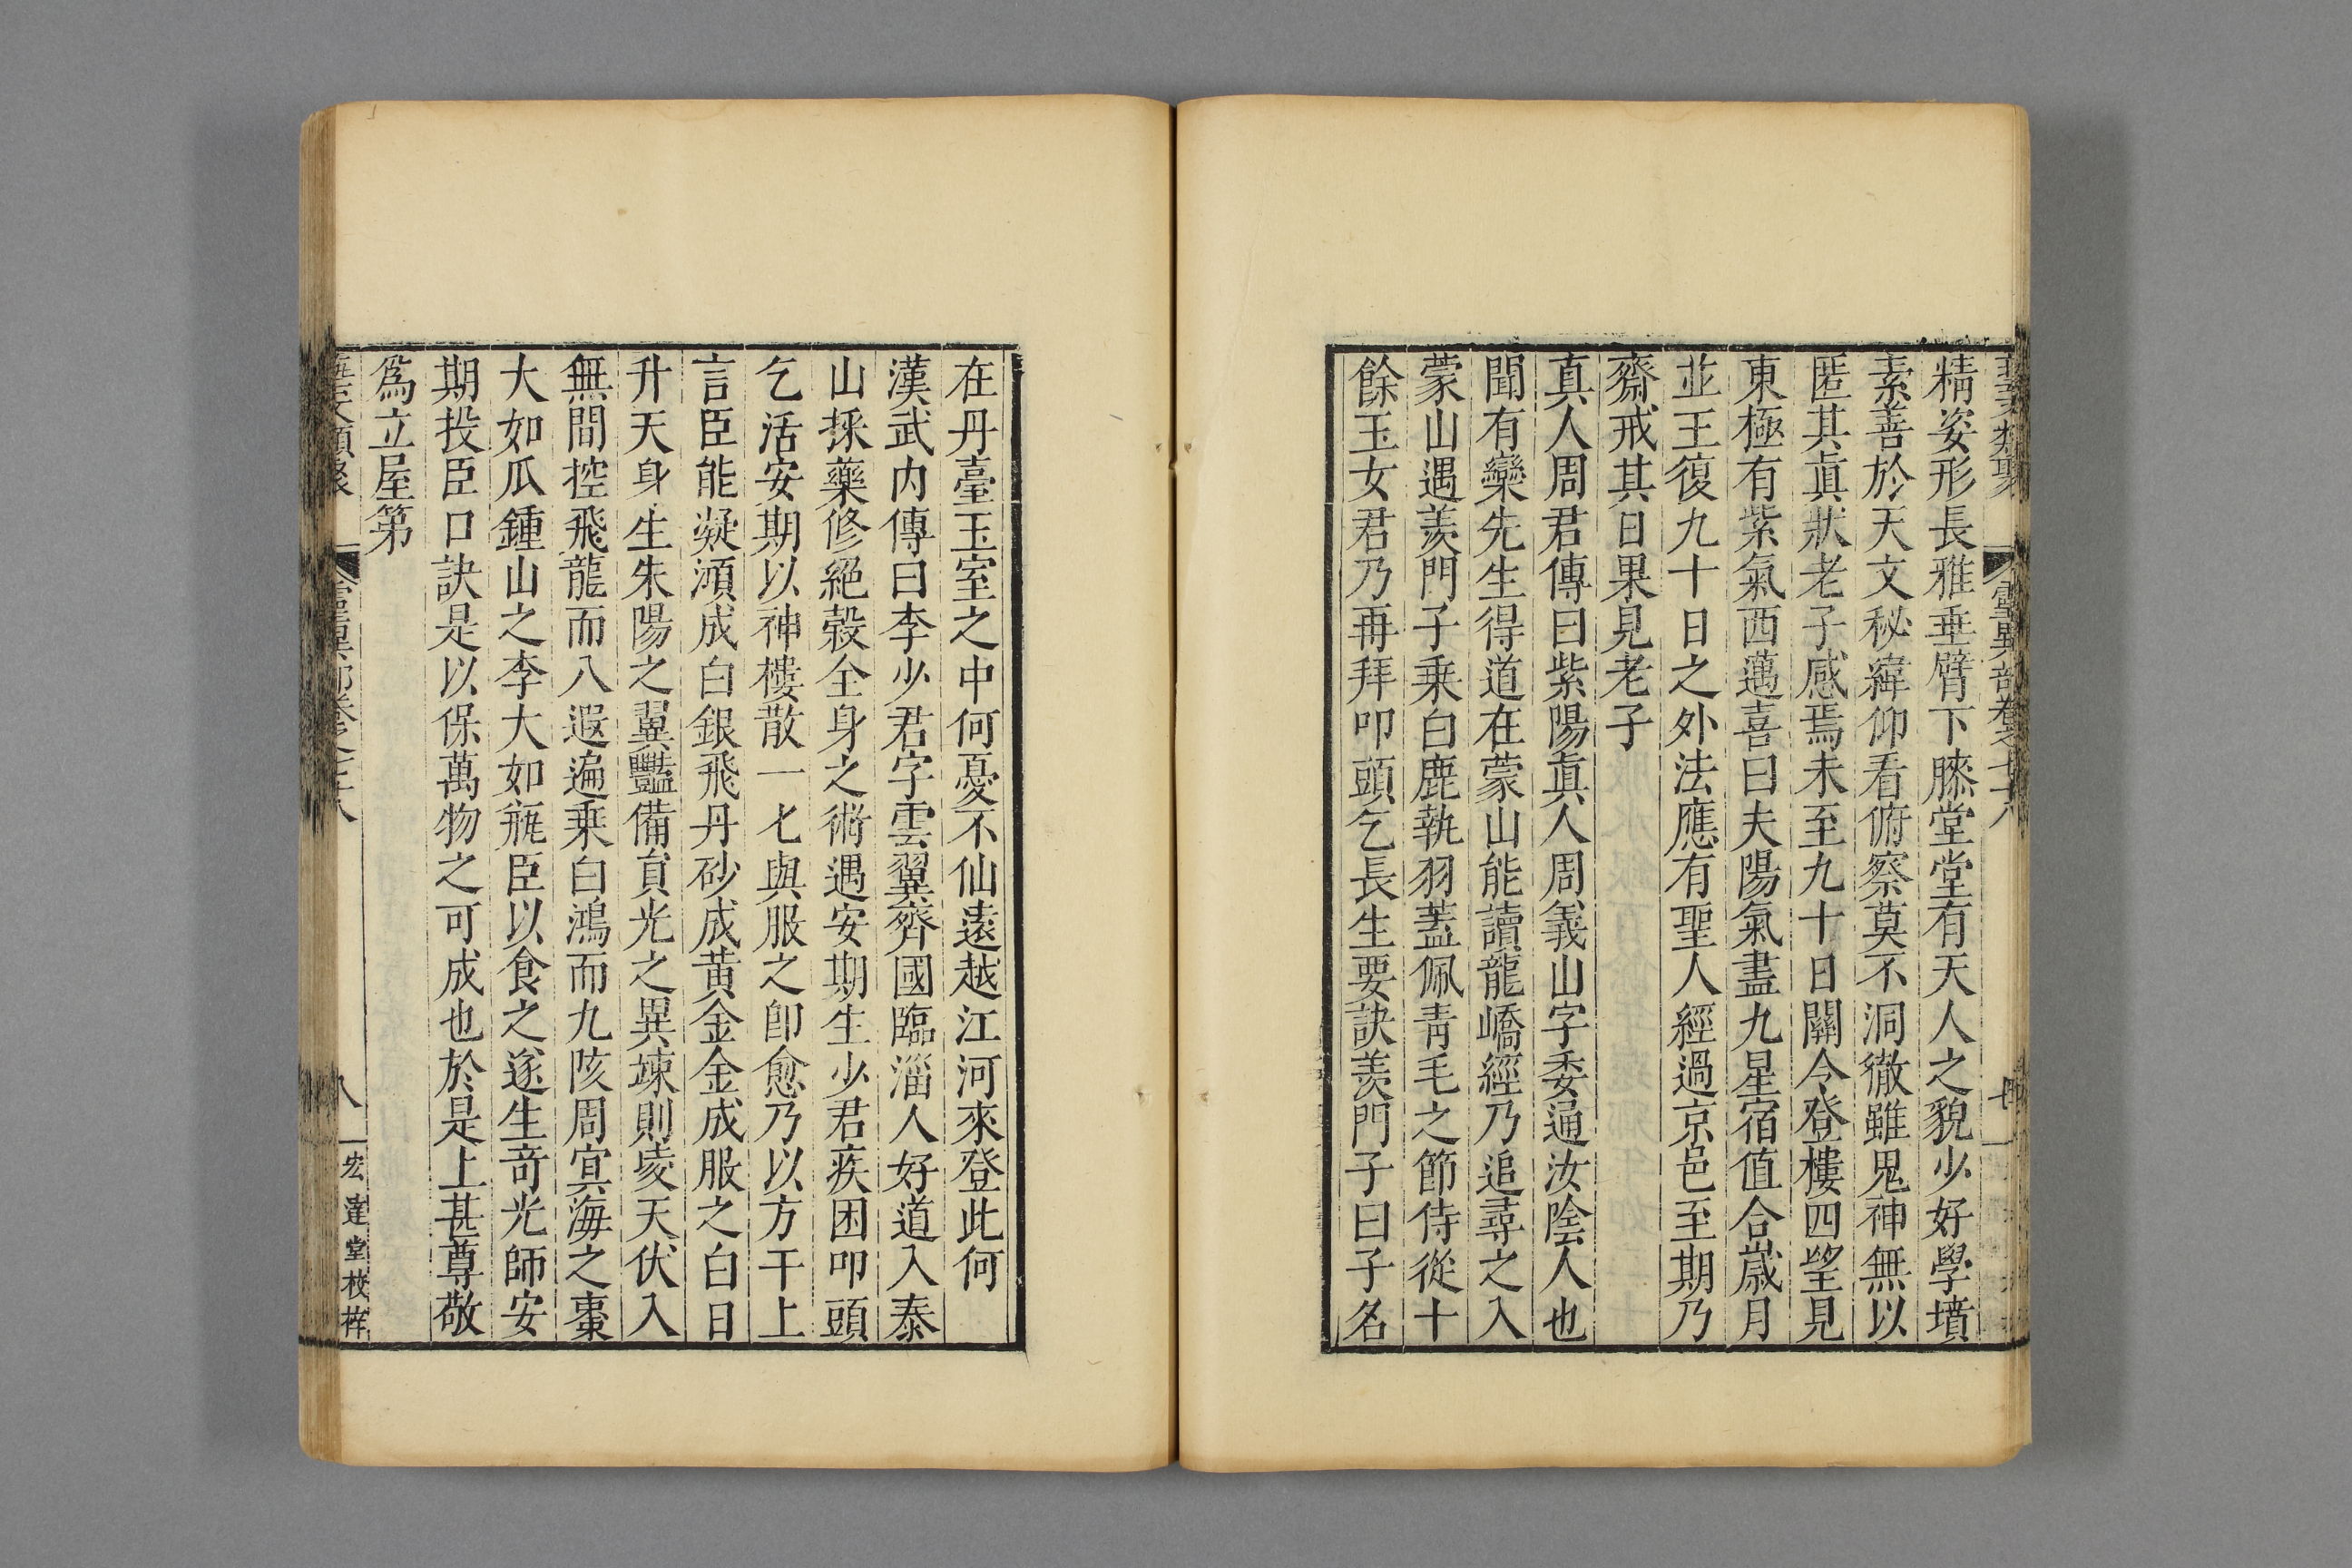 精姿形長雅垂臂下膝堂堂有天人之貌少好學墳
素善於天文秘緯仰看俯察莫不洞徹雖鬼神無以
匿其眞狀老子感焉未至九十日關令登樓四望見
東極有紫氣西邁喜曰夫陽氣盡九星宿值合歲月
並王復九十日之外法應有聖人經過京邑至期乃
齋戒其日果見老子
真人周君傳曰紫陽眞人周義山字委通汝陰人也
聞有欒先生得道在蒙山能讀龍嶠經乃追尋之入
蒙山遇羨門子乗白鹿執羽蓋佩靑毛之節侍從十
餘玉女君乃再拜叩頭乞長生要訣羨門子曰子名
在丹臺玉室之中何憂不仙遠越江河來登此何
漢武内傳曰李少君字雲翼齊國臨淄人好道入泰
山採藥修絕穀全身之術遇安期生少君疾困叩頭
乞活安期以神樓散一匕與服之卽愈乃以方干上
言臣能凝澒成白銀飛丹砂成黄金金成服之白日
升天身生朱陽之翼豔備員光之異竦則凌天伏入
無間控飛龍而八遐遍乗白鴻而九陔周㝠海之棗
大如瓜鍾山之李大如瓶臣以食之遂生竒光師安
期投臣口訣是以保萬物之可成也於是上甚尊敬
爲立屋第
八
宏達堂校梓